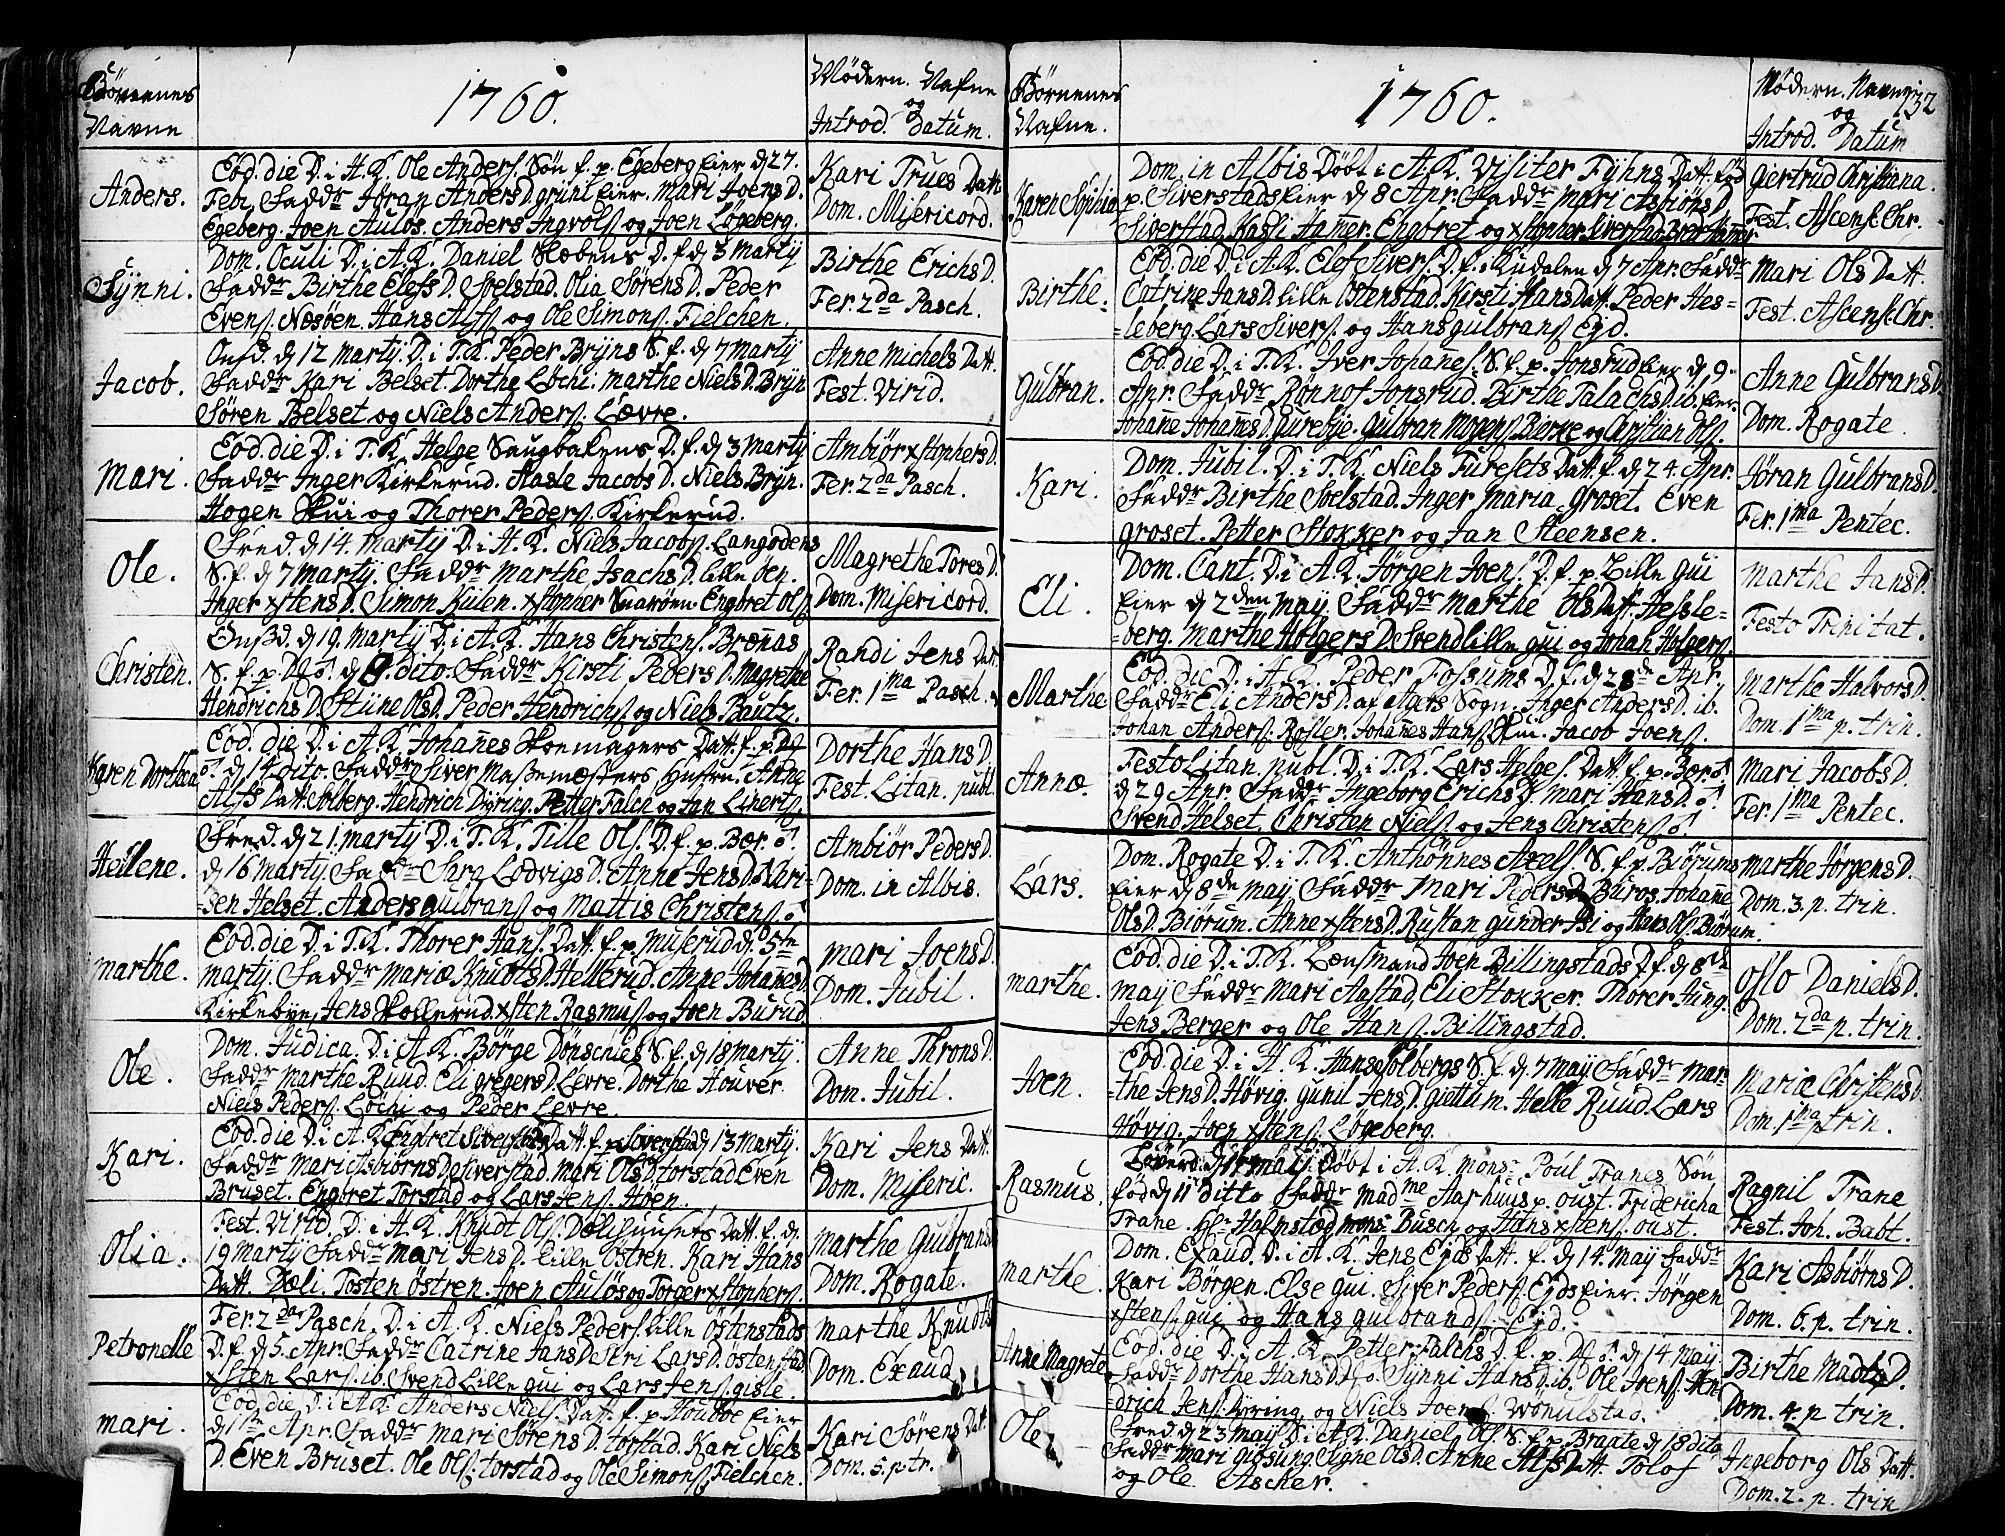 Børnenes
Navne
1760.
Mødern. Nafne
og
Introd. Datum.
Anders.
Eod. die D. i A. K. Ole Anders. Søn f. p. Egeberg Eier d 27.
Febr. Faddr Jøran Anders D. grini Eier. Mari Joens D.
Egeberg. Joen Aulos. Anders Ingvols. og Joen Løgeberg.
Kari Trues Datt.
Dom. Misericord.
Synni.
Dom. Oculi D. i A. K. Daniel D. f. d 3 Martÿ
Faddr Birthe Elefs D. Soelstad. Olia Sørens D. Peder
Evens. Næsøen. Hans Alfs. og Ole Simons. Fielchen.
Birthe Erichs D.
Fer. 2da Pasch.
Jacob.
Onsd. d 12 Martÿ. D. i T. K. Peder Brÿns S. f. d 7 Martÿ
Faddr Kari Belset. Dorthe Løchi. Marthe Niels D. Brÿn
Søren Belset og Niels Anders. Lævre.
Anne Michels Datt.
Fest. Virid.
Mari.
Eod. die D. i T. K. Helge Saugbakens D. f. d 3 Martÿ
Faddr Inger Kirkerud. Aasle Jacobs D. Niels Brÿn.
Hogen Skui og Thorer Peders. Kirkerud.
Ambiør xstophers D.
Fer. 2da Pasch.
Ole.
Fred. d 14. Martÿ D. i A. K. Niels Jacobs. Langodens
S. f. d 7 Martÿ. Faddr Marthe Isachs D. lille oen.
Inger xstens D. Simon Kulen. xstopher Snarøen. Engbret Ols.
Magrethe Tores D.
Dom. Misericord.
Christen.
Onsd. d 19. Martÿ D. i A. K. Hans Christens. Brænnas
S. f. p. d 9 dito. Faddr Kirsti Peders D. Magrethe
Hendrichs D. Stine Ols D. Peder Hendrichs. og Niels Bautz.
Randi Jens Datt.
Fer. 1ma Pasch.
Karen Dorthea
Eod. die D. i A. K. Johannes Skoemagers Datt. f. p.
d 14 dito. Faddr Siver Massemesters Hustru. Anne
Alfs Datt. Solberg. Hendrich Dÿring. Petter Falch og Jan Linerts.
Dorthe Hans D.
Fest. Litan. publ
Heilene.
Fred. d 21. Martÿ D. i T. K. Tille Ols. D. f. p. Bær. ♂
d 16 Martÿ Faddr Sara Lodvigs D. Anne Jens D. Kari-
=sen Helset. Anders gulbrans. og Mattis Christens. ♂
Ambiør Peders D.
Dom. in Albis.
Marthe.
Eod. die D. i T. K. Thorer Hans. Datt. f. p. Muserud d. 5te
Martÿ. Faddr Mariæ Knudts D. Hellerud. Anne Johannes D.
Kirkebye. Jens Skollerud. xsten Rasmus. og Joen Burud
Mari Joens D.
Dom. Jubil.
Ole.
Dom. Judica. D. i A. K. Børge Dønschies S. f. d 18 Martÿ.
Faddr Marthe Ruud. Eli gregers D. Levre. Dorthe Houver.
Niels Peders. Løchi og Peder Levre.
Anne Throns D.
Dom. Jubil.
Kari.
Eod. die D. i A. K. Engbret Siverstads Datt. f. p. Siverstad d 13 Martÿ.
Faddr Mari Asbiørns D. Siverstad. Mari Ols D. torstad Even
Bruset. Engbret Torstad og Lars Jens. Hoen.
Kari Jens Datt.
Dom. Miseric.
Olia.
Fest. Virid. D. i A. K. Knudt Ols. Dælihuusets Datt. f. d.
19 Martÿ Faddr Mari Jens D. lille Østren. Kari Hans
Datt. Dæli. Tosten Østren. Joen Auløs og Torger xstophers.
Marthe Gulbrans
Dom. Rogate.
Petronelle
Fer. 2da Pasch. D. i A. K. Niels Peders. lille Østenstads
D. f. d 5. Apr. Faddr Catrine Jans D. Siri Lars D. østenstad
xsten Lars. ib. Svend Lille gui og Lars Jens. gisle.
Marthe Knudts
Dom. Exaud
Mari.
Eod. die D. i A. K. Anders Niels. Datt. f. p. Houboe Eier
d 1ste Apr. Faddr Mari Sørens D. torstad. Kari Niels
D. Even Bruset. Ole Ols. torstad og Ole Simons. Fielchen.
Kari Sørens Datt.
Dom. 5. p. tr.
Børnenes
Nafne.
1760.
Mødern. Navne
og
Introd. Datum
132
Karen Sophia
Dom. in Albis Døbt i A. K. Visiter Fÿhns Datt. fød
p. Siverstads Eier d 8 Apr. Faddr Mari Asbiøns D.
Siverstad. Kasti Hammer. Engbret og xstopher Siverstad. Hammer
Gertrud Christiana.
Fest. Ascens. Chr.
Birthe.
Eod. die D. i A. K. Elef Sivers. D. f. i Kudalen d 7 Apr. Faddr
Catrine Jans D. lille Østenstad. Kirsti Hans Datt. Peder Hes-
=leberg. Lars Sivers. og Hans gulbrans. Eÿd.
Mari Ols Datt.
Fest. Ascens. Chr.
Gulbran.
Eod. die D. i T. K. Iver Johannes. S. f. p. Jonsrud Eier d 9.
Apr. Faddr Rønnof Jonsrud. Birthe Palachs D. ib. Eier.
Johanne Johannes D. Gurebÿe. Gulbran Mogens. Bierke og Christian Ols.
Anne Gulbrans D.
Dom. Rogate.
Kari.
Dom. Jubil. D. i T. K. Niels Furesets Datt. f. d 24. Apr.
Faddr Birthe Soelstad. Inger Maria groset. Even
groset. Petter Stokker og Jan Steensen.
Jøran Gulbrans D.
Fer. 1ma Pentec.
Eli.
Dom. Cant. D. i A. K. Jørgen Joens. D. f. p. Lille gui
Eier d 2den May. Faddr Marthe Ols Datt. Hessle-
=berg. Marthe Holgers D. Svend Lille gui og Johan Holgers.
Marthe Jans D.
Festo Trinitat.
Marthe
Eod. die D. i A. K. Peder Fossums D. f. d 28de Apr.
Faddr Eli Anders D. af Agers Sogn. Inger Anders D. ib.
Johan Anders. Røsler. Johannes Hans. Skui. Jacob Joens.
Marthe Halvors D.
Dom. 1ma p. trin.
Annæ.
Festo Litan. publ. D. i T. K. Lars Helges. Datt. f. p. Bær. ♂
d 29 Apr. Faddr Ingeborg Erichs D. Mari Hans D. ♂
Svend Helset. Christen Niels. og Jens Christens. ♂
Mari Jacobs D.
Fer. 1ma Pentec.
Lars.
Dom. Rogate D. i T. K. Anthønnes Axels. S. f. p. Biørums
Eier d 8de May Faddr Mari Peders D. Buros. Johanne
Ols D. Biørum. Anne xstens D. Rustan gunder Isi og Hans Ols. Biørum.
Marthe Jørgens D.
Dom. 3. p. trin.
Marthe.
Eod. die D. i T. K. Lænsmand Joen Billingstads D. f. d 8de
May Faddr Mari Aastad, Eli Stokker. Thorer Jung.
Jens Berger og Ole Hans. Billingstad.
Oslo Daniels D.
Dom. 2da p. trin.
Joen.
Eod. die D. i A. K. Hans Solbergs S. f. d 7 May Faddr Mar-
=the Jens D. Høvig. gunil Jens D. giettum. Helle Ruud Lars
Høvig. Joen xstens. Løgeberg.
Mariæ Christens D.
Dom. 1ma p trin.
Rasmus.
Løverd. d Maÿ. Døbt i A. K. Monsr Poul Tranes Søn
fød d 11 ditto Faddr Madme Aarhuus p. oust. Fridericha
Trane. Hr Halmstæd Monsr Busch og Hans xstens. oust.
Ragnil Trane
Fest. Joh. Babt.
Marthe.
Dom. Exaud. D. i A. K. Jens Eÿds Datt. f. d 14. May Faddr
Kari Børgen. Else gui. Siver Peders. Eÿds Eier. Jørgen
xstens. gui og Hans gulbrands. Eÿd.
Kari Asbiørns D.
Dom. 6. p. trin.
Anne Magrete
Eod. die D. i A. K. Petter Falchs D. f. p. d 14 May.
Faddr Dorthe Hans D. Sÿnni Hans D. ib. Ole Joens. Hen-
drich Jens. Dÿring og Niels Joens. Wonulstad.
Birthe Madts D.
Dom. 4. p trin.
Ole
Fred. d 23 May D. i A. K. Daniel Ols. S. f. p. Braate d 18 dito
Faddr Mari giøsung. Signe Ols D. Anne Alfs Datt. Tolof
og Ole Ascher.
Ingeborg Ols Datt.
Dom. 2. p. trin